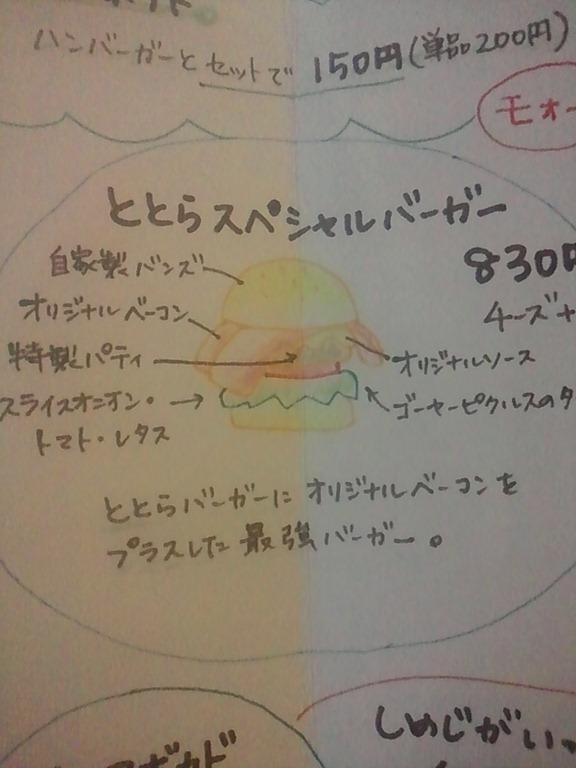 ハンバーガーとセットで 150円(単品200円)
モォー
ととらスペシャルバーガー
830円
自家製バンズ
オリジナルベーコン
チーズ+
特製パティ
オリジナルソース
スライスオニオン・
トマト・レタス
ゴーヤーピクルスのタ
ととらバーガーに オリジナルベーコンを
プラスした 最強バーガー。
しめじがいっ
アボカド